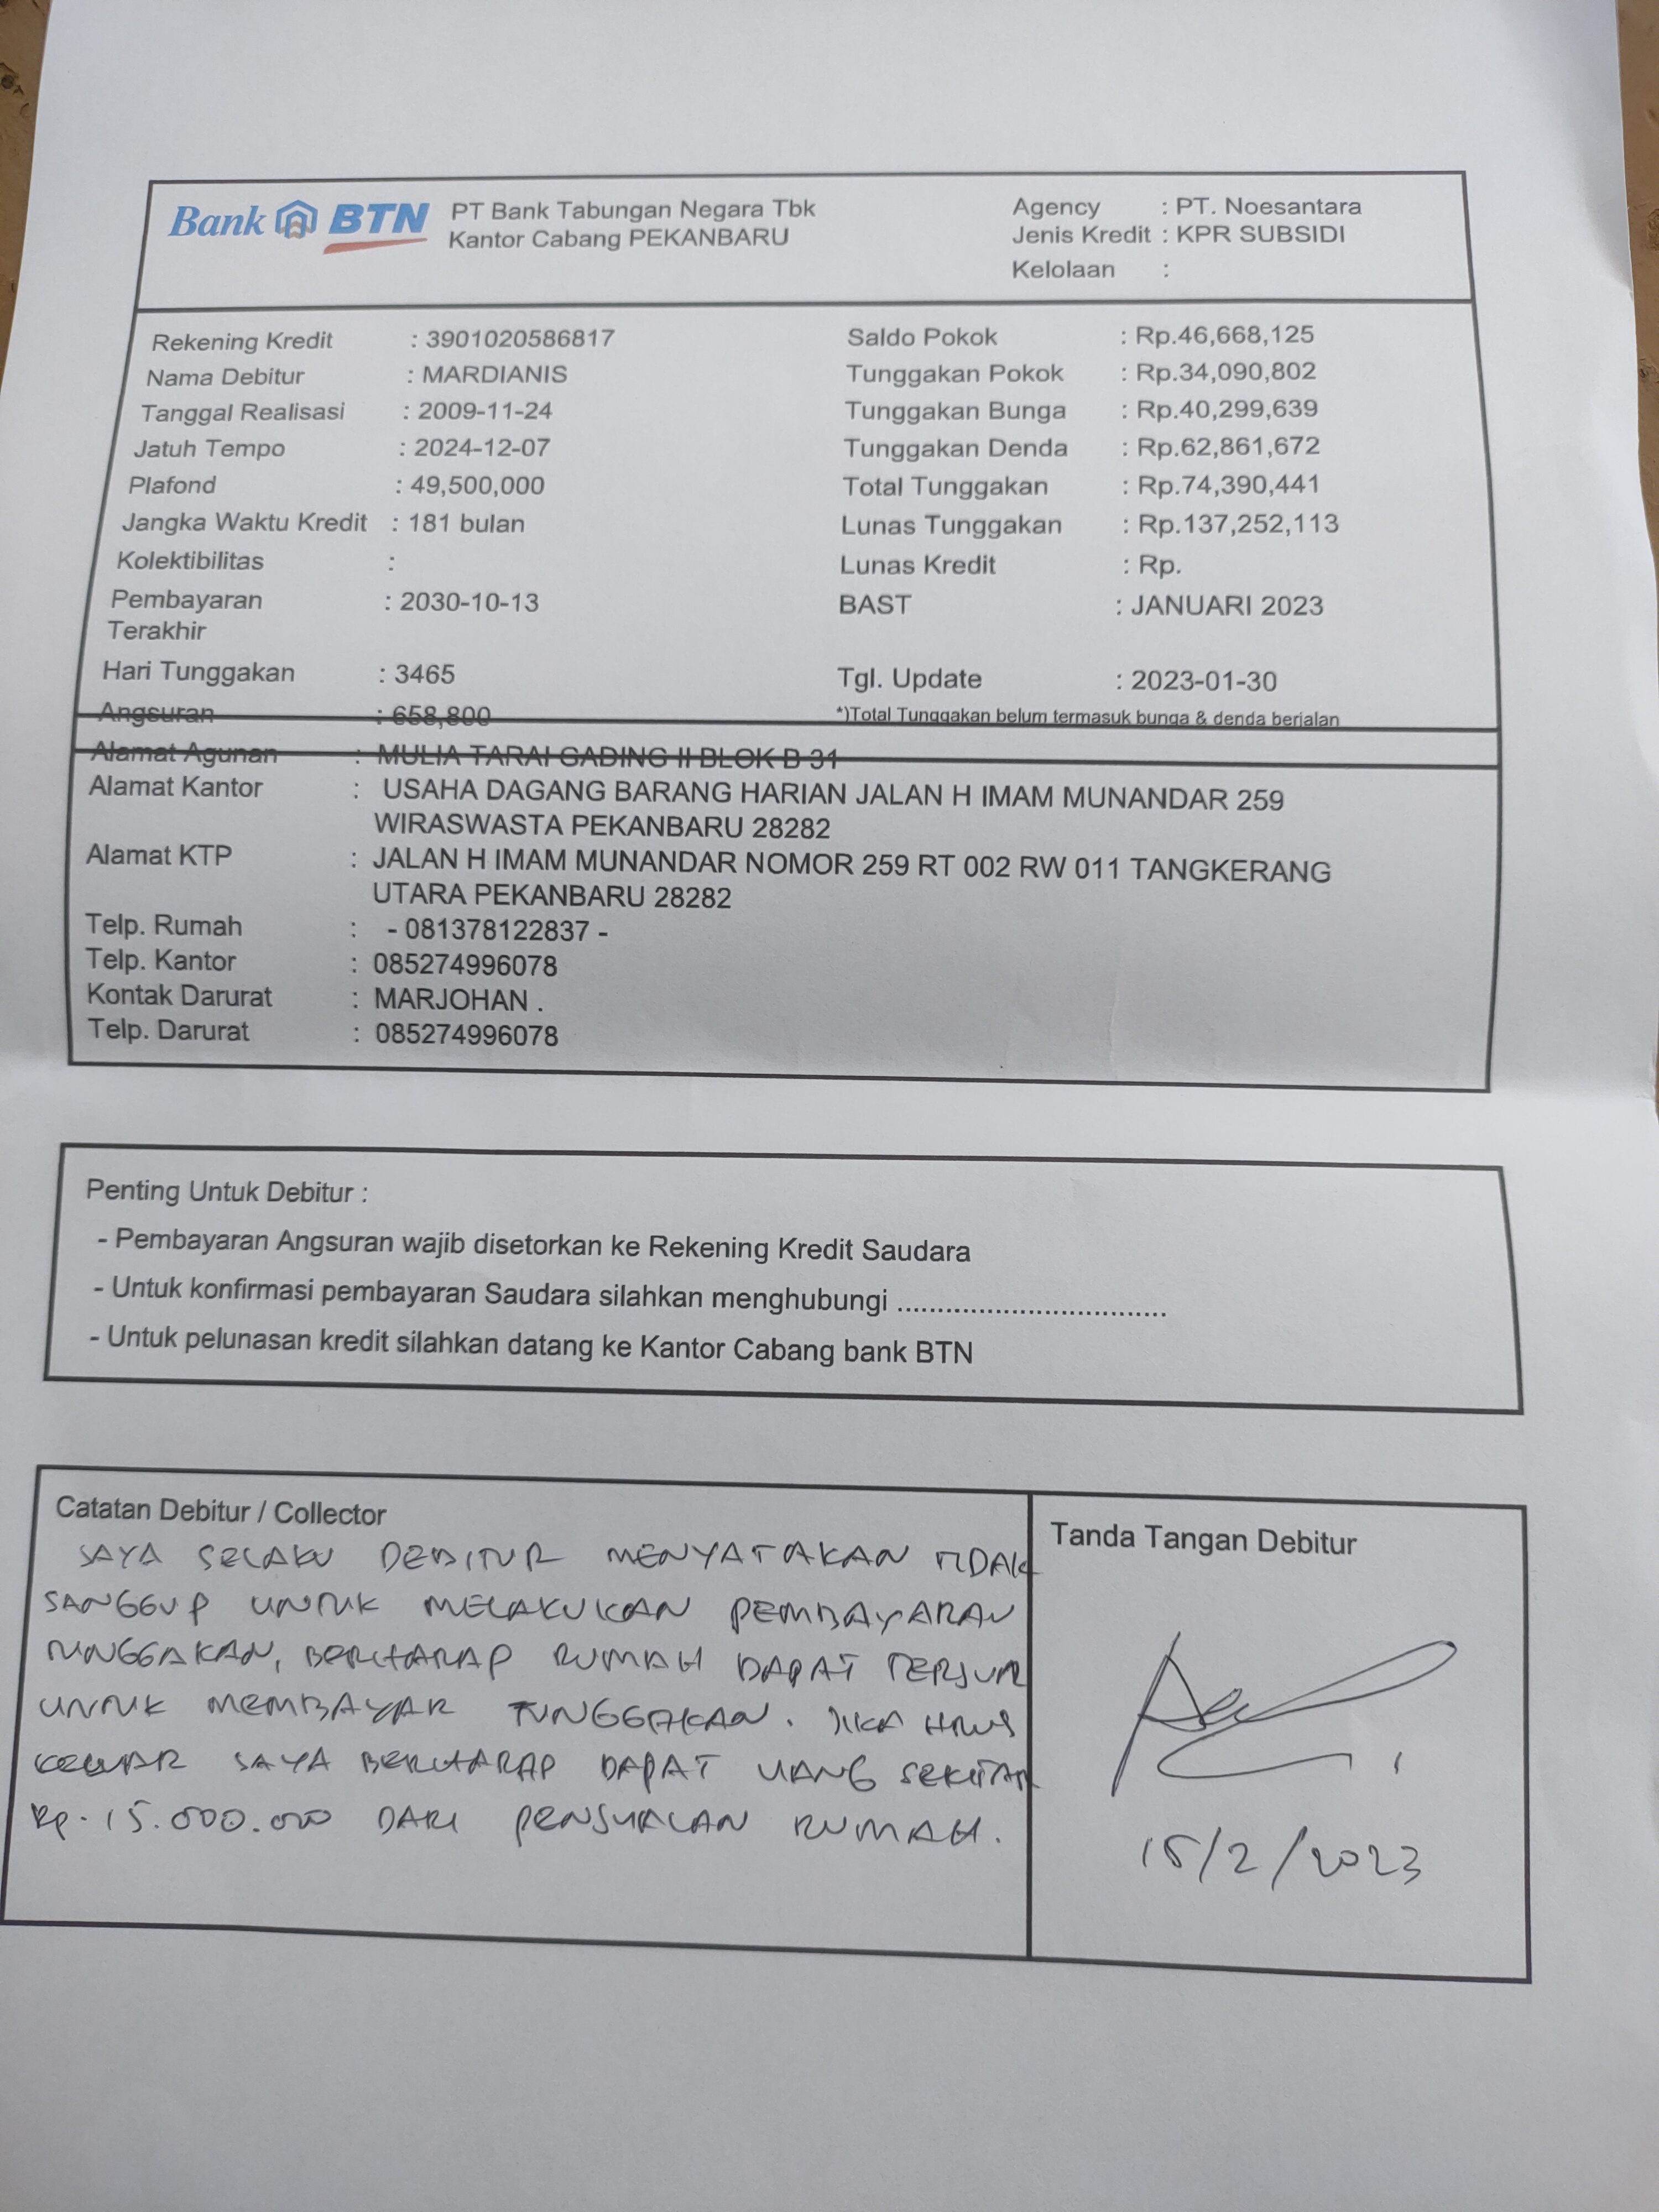 Bank BTN
PT Bank Tabungan Negara Tbk
Kantor Cabang PEKANBARU
Agency : PT. Noesantara
Jenis Kredit : KPR SUBSIDI
Kelolaan :
Rekening Kredit : 3901020586817
Nama Debitur : MARDIANIS
Tanggal Realisasi : 2009-11-24
Jatuh Tempo : 2024-12-07
Plafond : 49,500,000
Jangka Waktu Kredit : 181 bulan
Kolektibilitas :
Pembayaran : 2030-10-13
Terakhir
Hari Tunggakan : 3465
Angsuran : 658,800
Saldo Pokok : Rp.46,668,125
Tunggakan Pokok : Rp.34,090,802
Tunggakan Bunga : Rp.40,299,639
Tunggakan Denda : Rp.62,861,672
Total Tunggakan : Rp.74,390,441
Lunas Tunggakan : Rp.137,252,113
Lunas Kredit : Rp.
BAST : JANUARI 2023
Tgl. Update : 2023-01-30
*)Total Tunggakan belum termasuk bunga & denda berjalan
Alamat Agunan : MULIA TARAI GADING II BLOK B 31
Alamat Kantor : USAHA DAGANG BARANG HARIAN JALAN H IMAM MUNANDAR 259
WIRASWASTA PEKANBARU 28282
Alamat KTP : JALAN H IMAM MUNANDAR NOMOR 259 RT 002 RW 011 TANGKERANG
UTARA PEKANBARU 28282
Telp. Rumah : - 081378122837 -
Telp. Kantor : 085274996078
Kontak Darurat : MARJOHAN .
Telp. Darurat : 085274996078
Penting Untuk Debitur :
- Pembayaran Angsuran wajib disetorkan ke Rekening Kredit Saudara
- Untuk konfirmasi pembayaran Saudara silahkan menghubungi .................................
- Untuk pelunasan kredit silahkan datang ke Kantor Cabang bank BTN
Catatan Debitur / Collector
SAYA SELAKU DEBITUR MENYATAKAN TIDAK
SANGGUP UNTUK MELAKUKAN PEMBAYARAN
TUNGGAKAN, BERHARAP RUMAH DAPAT TERJUR
UNTUK MEMBAYAR TUNGGAKAN. JIKA HRUS
KELUAR SAYA BERHARAP DAPAT UANG SEKITAR
Rp. 15.000.000 DARI PENJUALAN RUMAH.
Tanda Tangan Debitur
15/2/2023